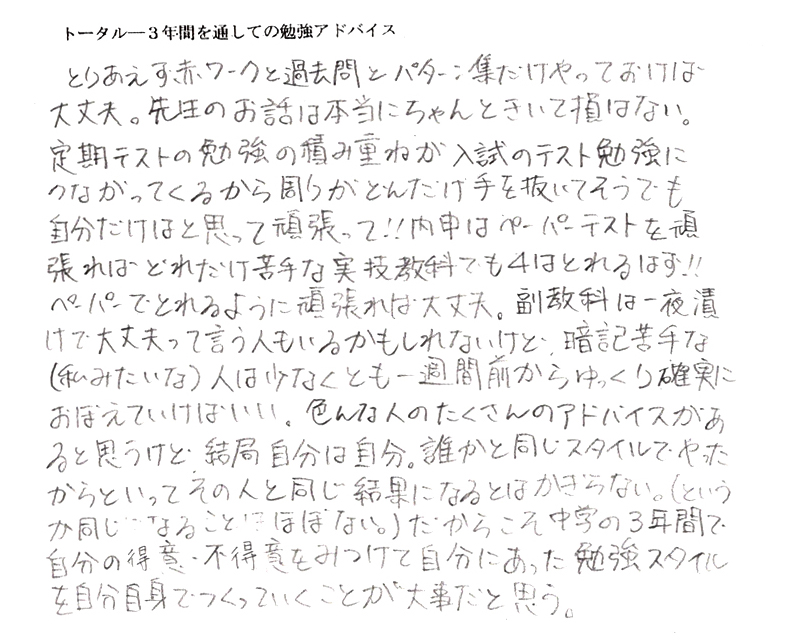 トータル―3年間を通しての勉強アドバイス
とりあえず赤ワークと過去問とパターン集だけやっておけば
大丈夫。先生のお話は本当にちゃんときいて損はない。
定期テストの勉強の積み重ねが入試のテスト勉強に
つながってくるから周りがどんだけ手を抜いてそうでも
自分だけはと思って頑張って!!内申はペーパーテストを頑
張ればどれだけ苦手な実技教科でも4はとれるはず!!
ペーパーでとれるように頑張れば大丈夫。副教科は一夜漬
けで大丈夫って言う人もいるかもしれないけど、暗記苦手な
(私みたいな)人は少なくとも一週間前からゆっくり確実に
おぼえていけばいい。色んな人のたくさんのアドバイスがあ
ると思うけど、結局自分は自分。誰かと同じスタイルでやった
からといってその人と同じ結果になるとはかぎらない。(という
か同じになることはほぼない。)だからこそ中学の3年間で
自分の得意・不得意をみつけて自分にあった勉強スタイル
を自分自身でつくっていくことが大事だと思う。